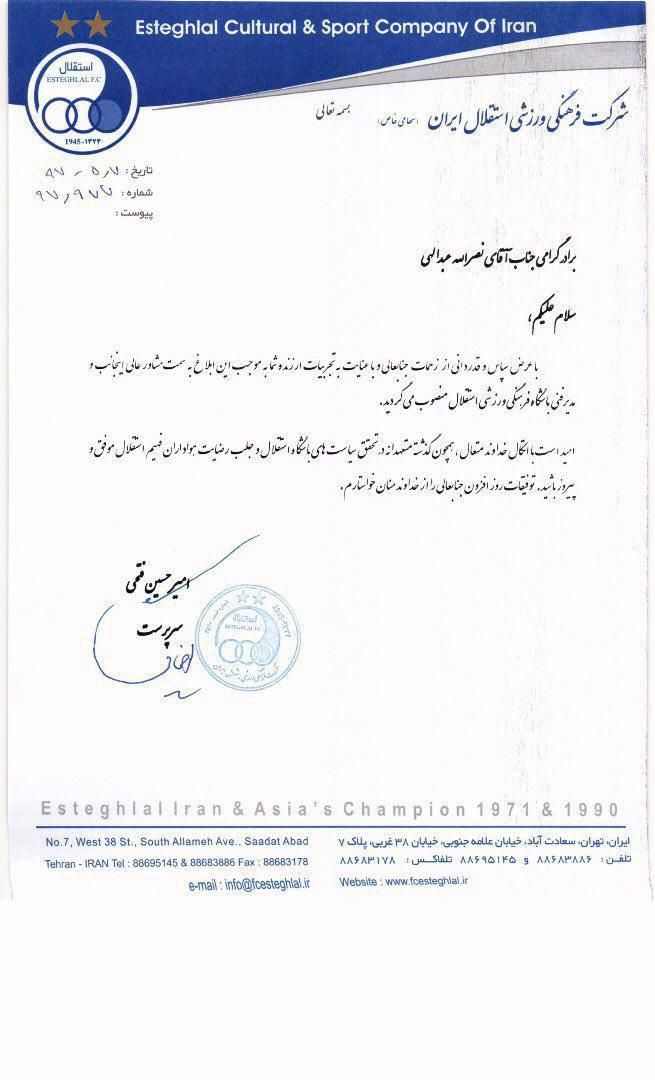 Esteghlal Cultural & Sport Company Of Iran
استقلال
ESTEGHLAL F.C
1945-۱۳۲۴
شرکت فرهنگی ورزشی استقلال ایران (سهامی خاص)
بسمه تعالی
تاریخ :
شماره : ۹۷٫۹۷۲
پیوست :
برادر گرامی جناب آقای نصرالله عبدالهی
سلام علیکم؛
با عرض سپاس و قدردانی از زحمات جنابعالی و با عنایت به تجربیات ارزنده شما به موجب این ابلاغ به سمت مشاور عالی اینجانب و
مدیر فنی باشگاه فرهنگی ورزشی استقلال منصوب می گردید.
امید است با اتکال خداوند متعال، همچون گذشته متعهدانه در تحقق سیاست های باشگاه استقلال و جلب رضایت هواداران فهیم استقلال موفق و
پیروز باشید. توفیقات روز افزون جنابعالی را از خداوند منان خواستارم.
امیرحسین فتحی
سرپرست
استقلال
ESTEGHLAL F.C
1945-۱۳۲۴
Esteghlal Iran & Asia's Champion 1971 & 1990
No.7, West 38 St., South Allameh Ave., Saadat Abad
Tehran - IRAN Tel : 88695145 & 88683886 Fax : 88683178
e-mail : info@fcesteghlal.ir
ایران، تهران، سعادت آباد، خیابان علامه جنوبی، خیابان ۳۸ غربی، پلاک ۷
تلفن : ۸۸۶۸۳۸۸۶ و ۸۸۶۹۵۱۴۵ تلفاکس : ۸۸۶۸۳۱۷۸
Website : www.fcesteghlal.ir